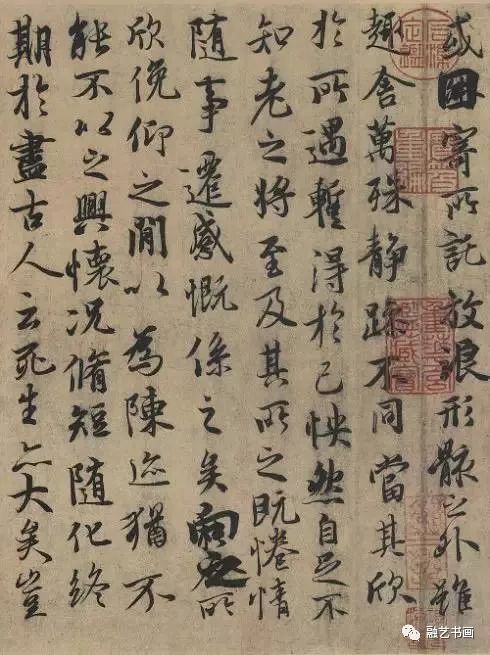 或因寄所託放浪形骸之外雖
趣舍萬殊静躁不同當其欣
於所遇暫得於己怏然自足不
知老之將至及其所之既惓情
随事遷感慨係之矣向之所
欣俛仰之閒以為陳迹猶不
能不以之興懷況脩短随化終
期於盡古人云死生亦大矣豈
融艺书画